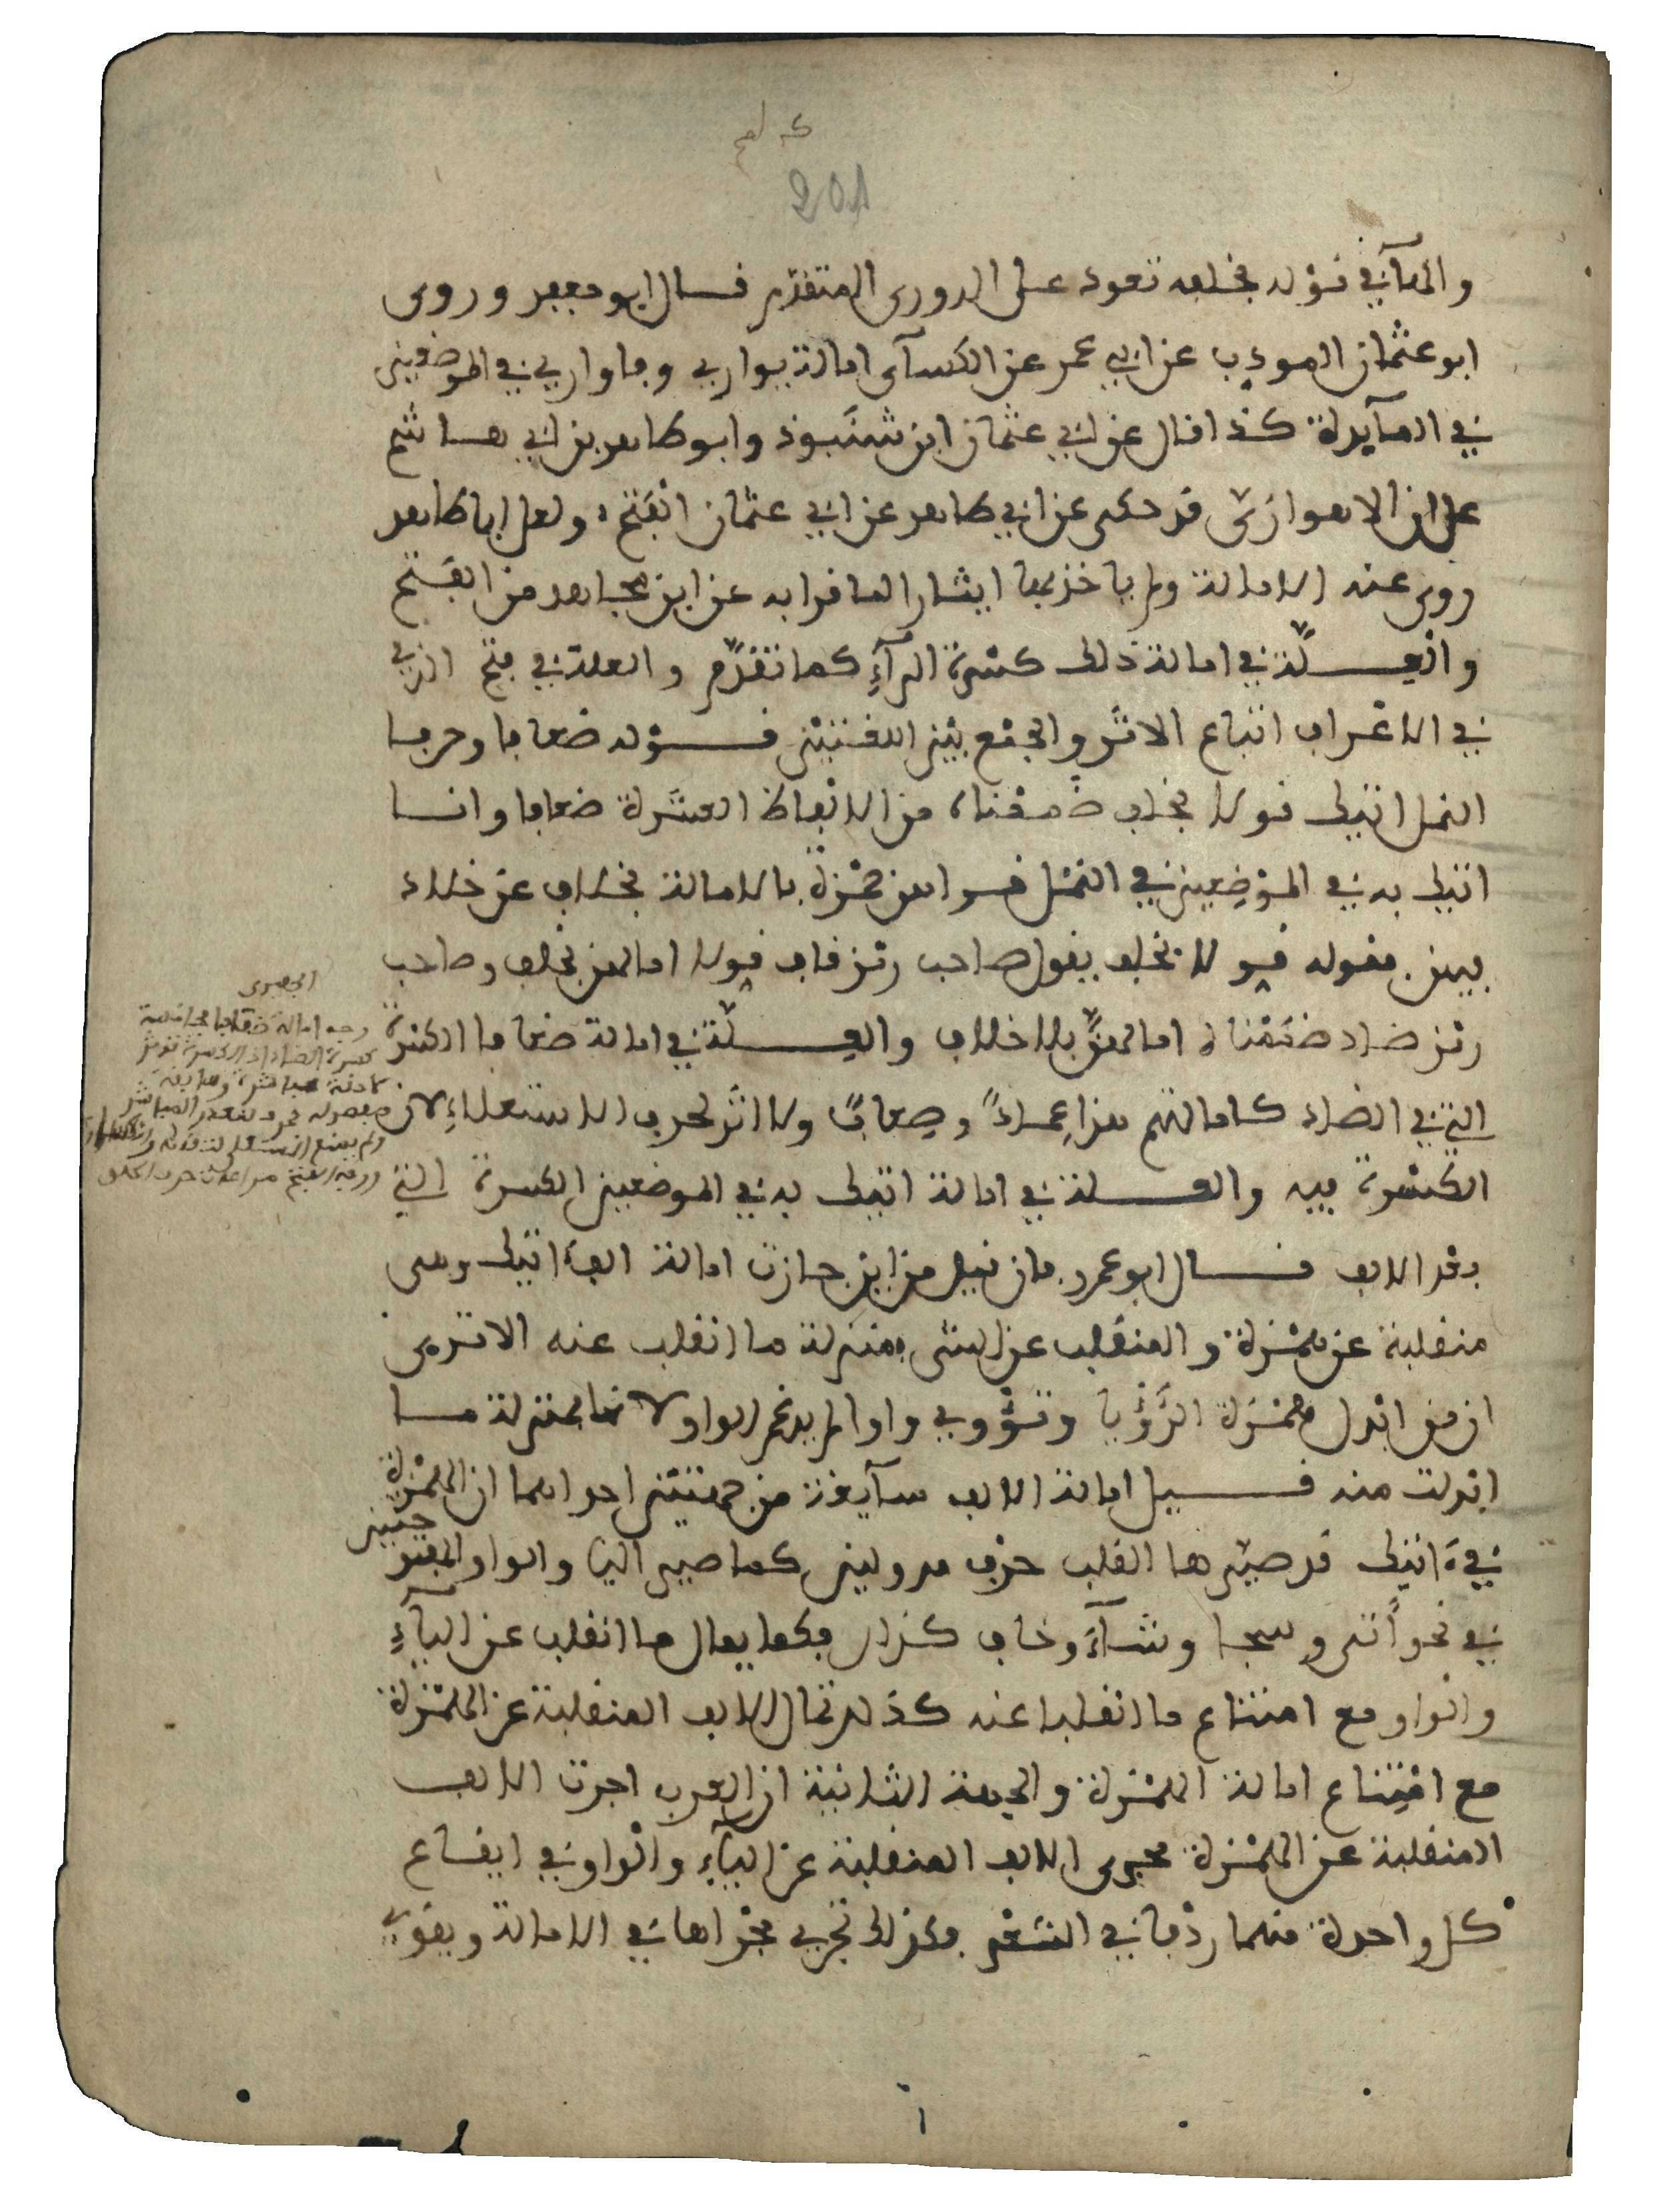 201
والهآ في قوله بخلفه تعود على الدوري المتقدم قال ابو جعفر وروى
ابو عثمان المودب عن ابي عمر عن الكسآى امالة يواري وفاواري في الموضعين
في المآيدة كذا قال عن ابي عثمان ابن شنبوذ وابو طاهر بن ابي هاشم
على ان الاهوازي قد حكى عن ابي طاهر عن ابي عثمان الفتح ولعل ابا طاهر
روى عنه الامالة ولم ياخذ بها ايثارا لما قرا به عن ابن مجاهد من الفتح
والعلة في امالة ذلك كسرة الرآء كما تقدم والعلة في فتح الذي
في الاعراف اتباع الاثر والجمع بين اللغتين قوله ضعافا وحرفا
النمل اتيك قولا بخلف ضممناه من الالفاظ الممالة ضعافا وانا
اتيك به في الموضعين في النمل قراهن حمزة بالامالة بخلاف عن خلاد
فيهن فقوله قولا بخلف يقول صاحب رمز قاف قولا امالهن بخلف وصاحب
رمز ضاد ضممناه امالهن بلا خلاف والعلة في امالة ضعافا الكسرة
التي في الضاد كامالتهم هذا عمادا وصعابا ولا اثر لحرف الاستعلاء لان
الكسرة فيه والعلة في امالة اتيك به في الموضعين الكسرة التي
بعد الالف قال ابو عمرو فان قيل من اين جازت امالة الف اتيك وهى
منقلبة عن همزة والمنقلب عن الشى بمنزلة ما انقلب عنه الا ترى
ان من ابدل همزة الرؤيا وتؤوي واوا لم يدغم الواو لانها بمنزلة ما
ابدلت منه قيل امالة الالف سآيغة من جهتين احداهما ان الهمزة
في اتيك قد صيرها القلب حرف مد ولين كما صير اليا والواو المفتوحتين
في نحو أتى وسجا وشآء وخاف كذلك فكما يمال ما انقلب عن اليآء
والواو مع امتناع ما انقلبا عنه كذلك تمال الالف المنقلبة عن الهمزة
مع امتناع امالة الهمزة والجهة الثانية ان العرب اجرت الالف
المنقلبة عن الهمزة مجرى الالف المنقلبة عن اليآء والواو في ايقاع
كل واحدة منهما ردفا في الشعر فكذلك تجري مجراها في الامالة ويقوي
الجعبرى
وجه امالة ضعافا مناسبة
كسرة الضاد اذ الكسرة تؤثر